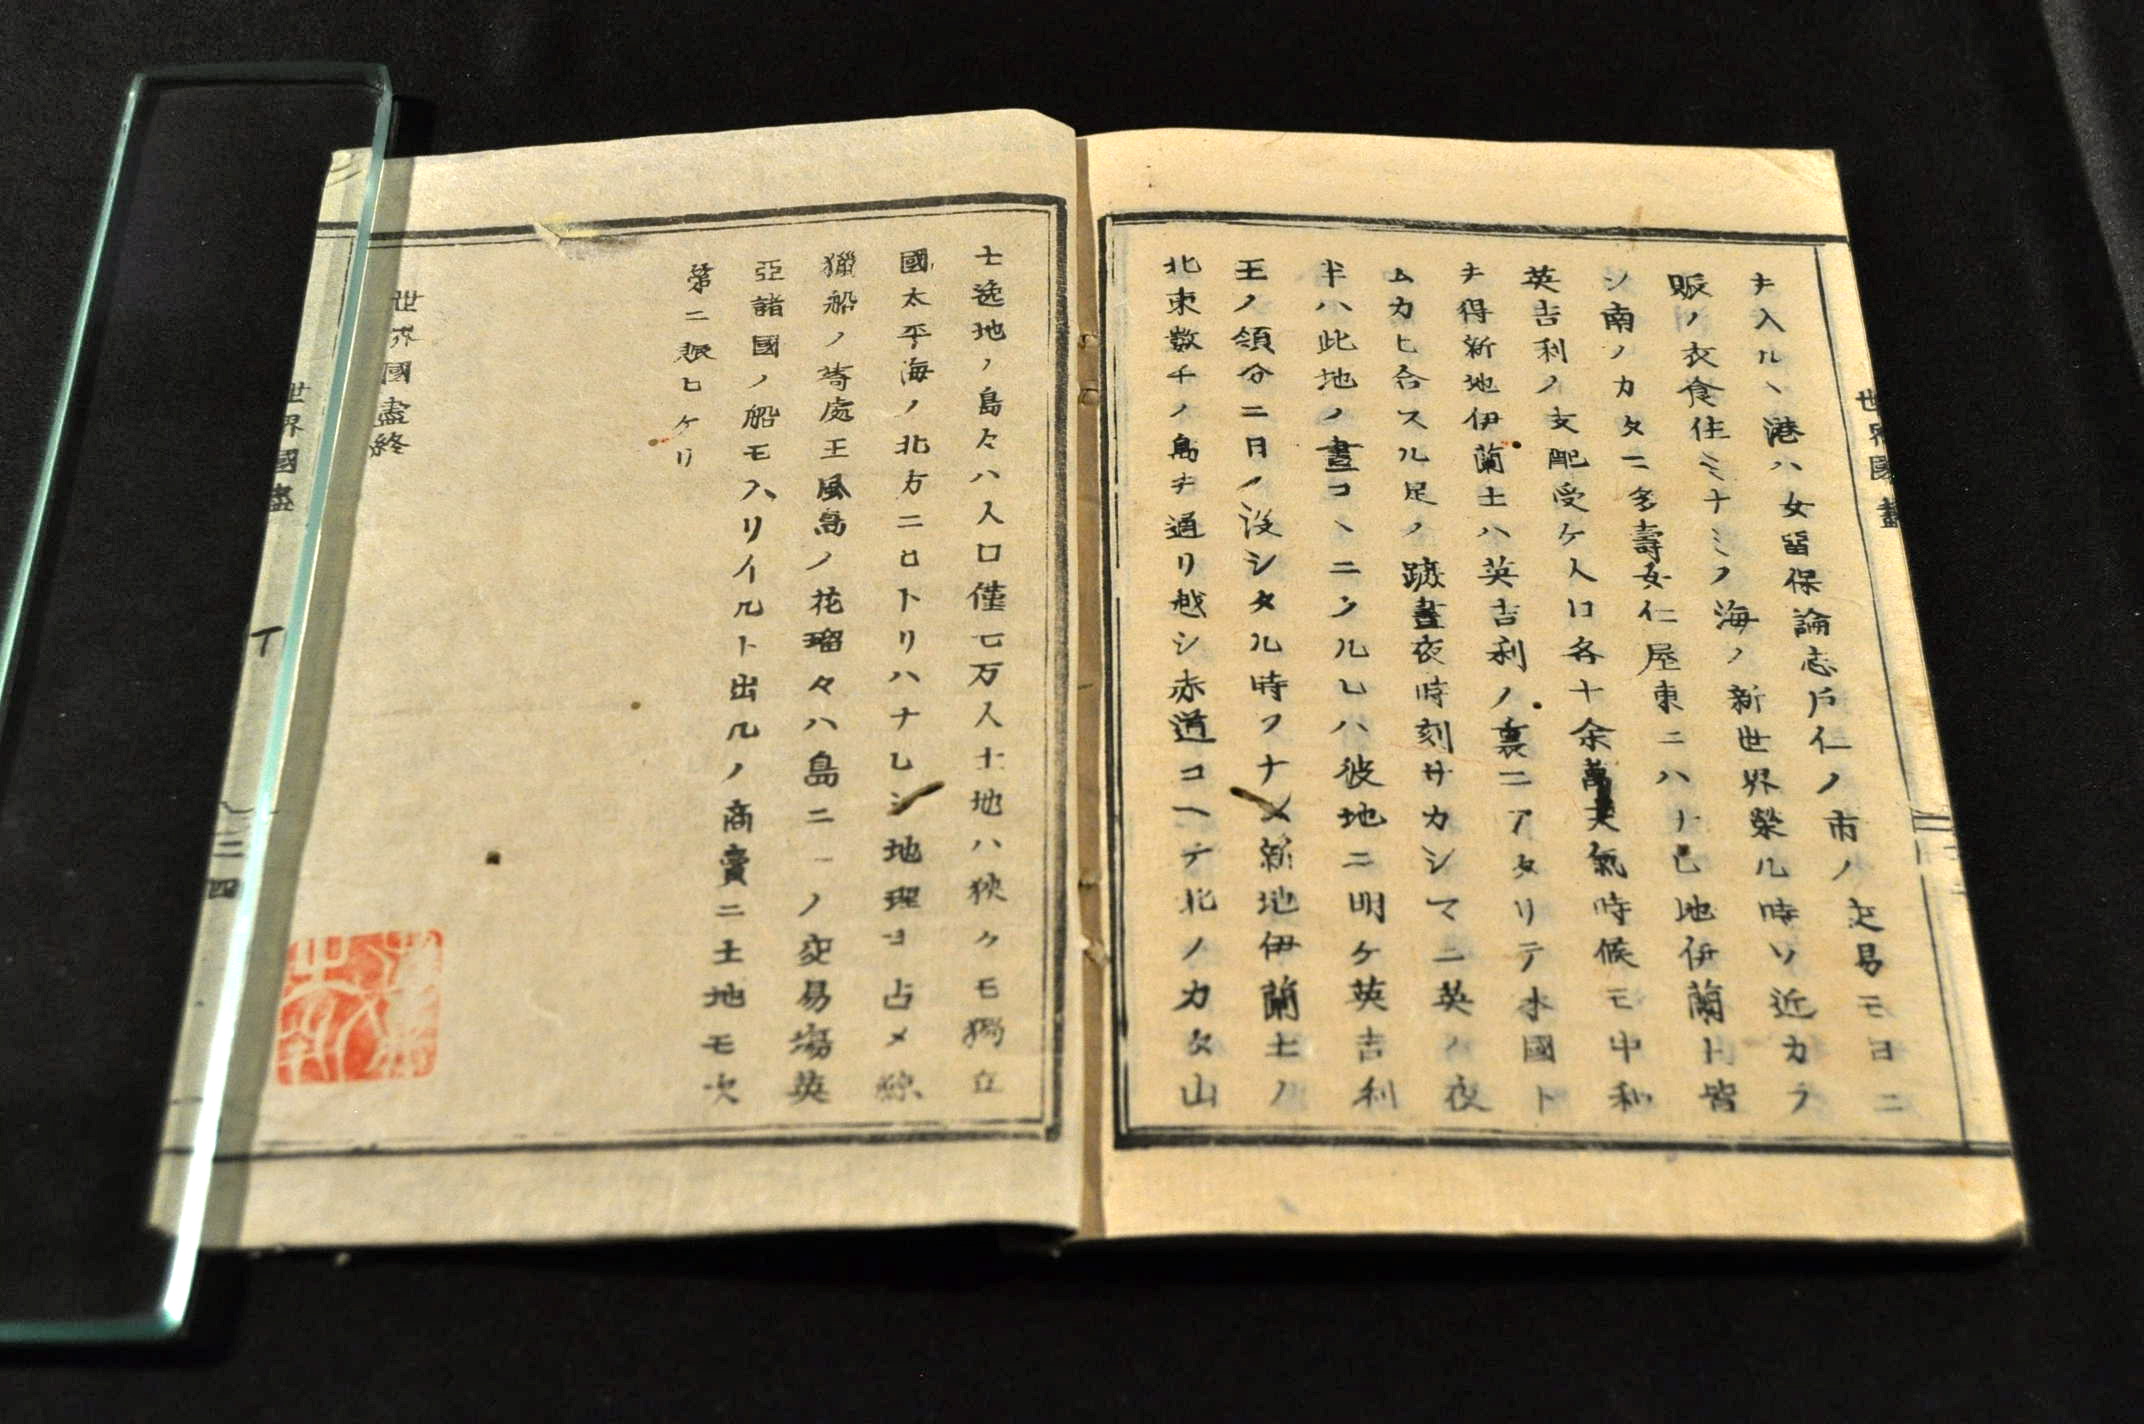 世界國盡
キ入ルヽ港ハ女留保論志戶仁ノ市ノ交易モヨニ
賑ノ衣食住ミナミノ海ノ新世界榮ル時ソ近カラ
シ南ノカタニ多壽女仁屋東ニハ地伊蘭ト皆
英吉利ノ支配受ケ人口各十余萬天氣時候モ中和
キ得新地伊蘭土ハ英吉利ノ裏ニアタリテ本國ト
ムカヒ合スル足ノ蹠晝夜時刻サカシマニ英ノ夜
半ハ此地ノ晝コヽニクルレハ彼地ニ明ケ英吉利
王ノ領分ニ日ノ沒シタル時フナメ新地伊蘭土ノ
北東数千ノ島キ通リ越シ赤道コヘテ北ノカタ山
士逸地ノ島々ハ人口僅七万人土地ハ狹クモ獨立
國太平海ノ北方ニロトリハナレシ地理ヨ占メ綜
獵船ノ寄處王風島ノ花瑠々ハ島ニ一ノ交易場英
亞諸國ノ船モ入リイルト出ルノ商賣ニ土地モ次
第ニ賑ヒケリ
世界國盡終
世界國盡
丁
二四